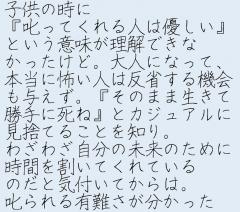 子供の時に
『叱ってくれる人は優しい』
という意味が理解できな
かったけど。大人になって、
本当に怖い人は反省する機会
も与えず。『そのまま生きて
勝手に死ね』とカジュアルに
見捨てることを知り。
わざわざ自分の未来のために
時間を割いてくれている
のだと気付いてからは。
叱られる有難さが分かった